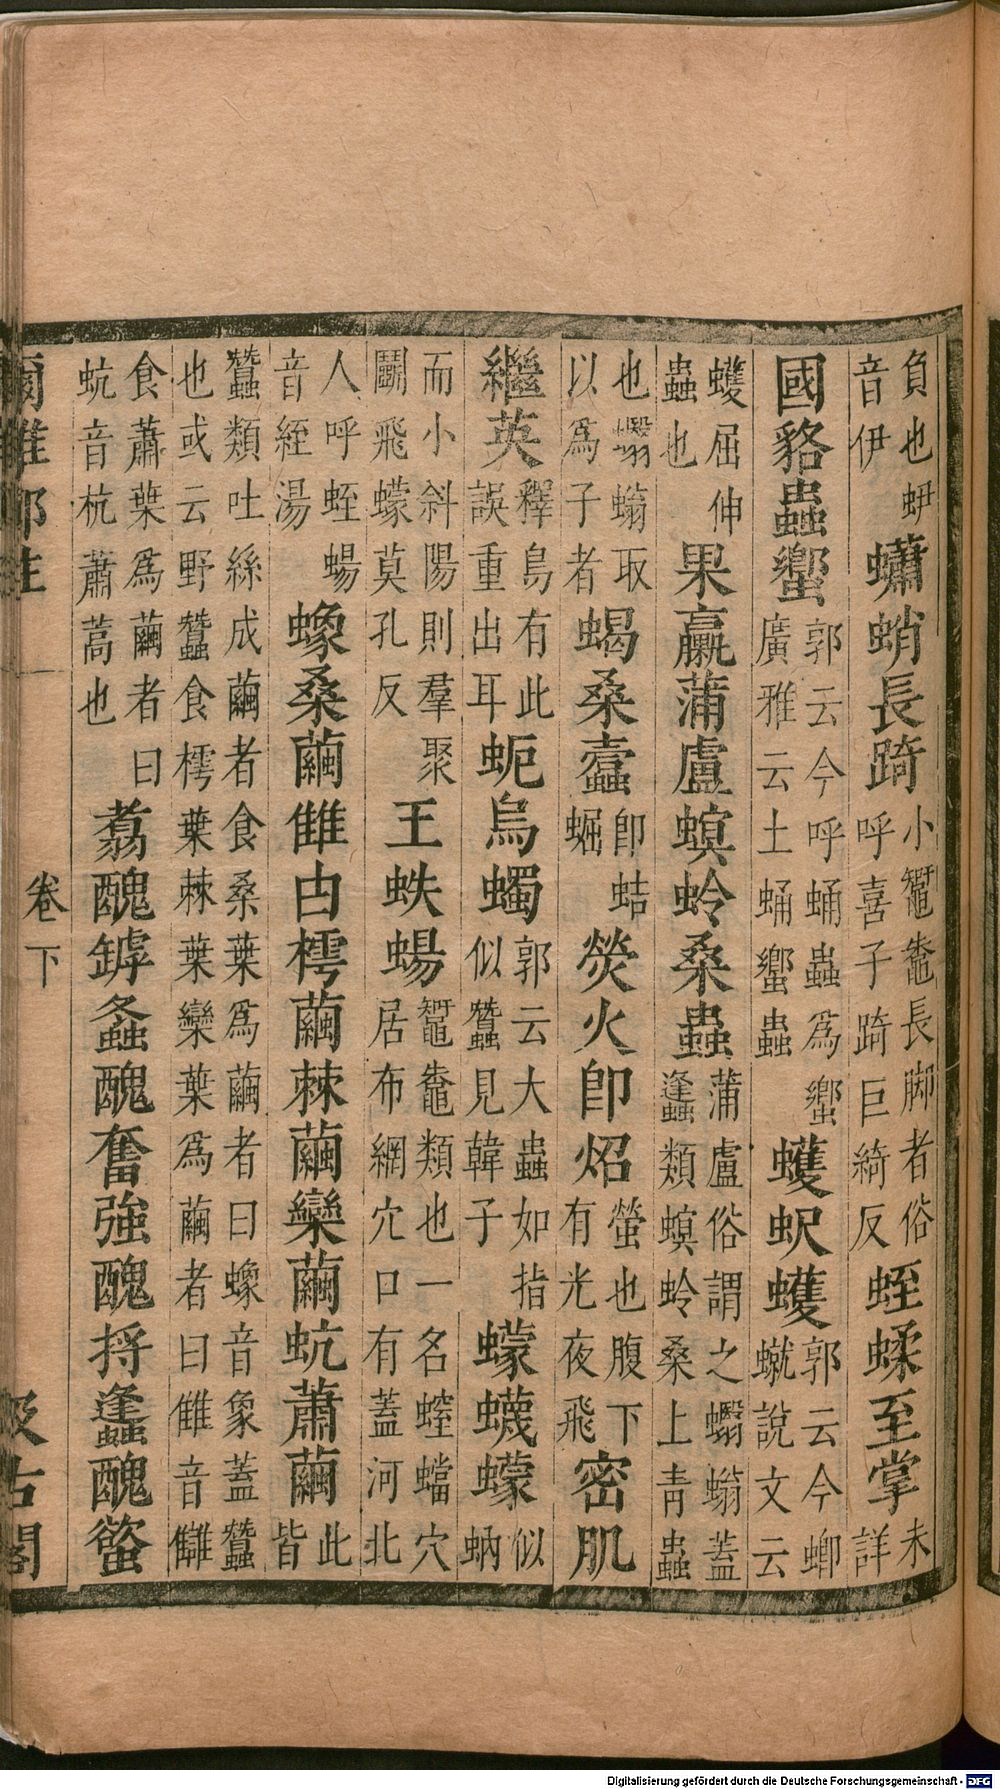 負也蛜音伊蠨蛸長踦小鼅鼄長脚者俗呼喜子踦巨綺反蛭蝚至掌未詳
國貉蟲蠁郭云今呼蛹蟲爲蠁廣雅云土蛹蠁蟲蠖蚇蠖郭云今蝍䗓說文云
蠖屈伸蟲也果蠃蒲盧螟蛉桑蟲蒲盧俗謂之蠮螉蓋蠭類螟蛉桑上青蟲
也蠮螉取以爲子者蝎桑蠹卽蛣𧌑熒火卽炤螢也腹下有光夜飛密肌
繼英釋鳥有此誤重出耳蚅烏蠋郭云大蟲如指似蠶見韓子蠓蠛蠓似蚋
而小斜陽則羣聚鬭飛蠓莫孔反王蛈蝪鼅鼄類也一名螲蟷穴居布網穴口有蓋河北
人呼蛭蝪音絰湯蟓桑繭雔由樗繭棘繭欒繭蚢蕭繭此皆
蠶類吐絲成繭者食桑葉爲繭者曰蟓音象蓋蠶也或云野蠶食樗葉棘葉欒葉爲繭者曰雔音讎
食蕭葉爲繭者曰蚢音杭蕭蒿也翥醜鏬螽醜奮強醜捋蠭醜螸
爾雅郭注
卷下
汲古閣
Digitalisierung gefördert durch die Deutsche Forschungsgemeinschaft - DFG